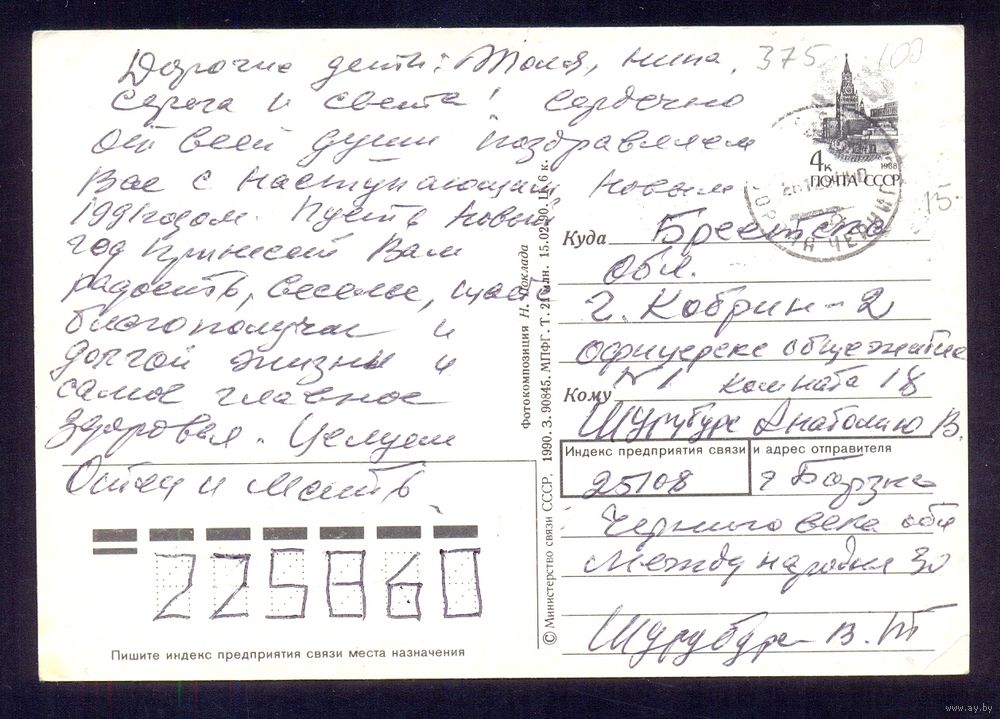 Дорогие дети: Толя, Нина,
Сережа и Света! Сердечно
от всей души поздравляем
Вас с наступающим Новым
1991 годом. Пусть Новый
год принесет Вам
радость, веселье, счастье
благополучия и
долгой жизни и
самое главное
здоровья. Целуем
Отец и мать
225860
Пишите индекс предприятия связи места назначения
© Министерство связи СССР. 1990. З. 90845. МПФГ. Т. 21 млн. 15.02.90. Ц. 6 к.
Фотокомпозиция Н. Доклада
375
100
4к
1988
ПОЧТА СССР
15-
Куда Брестская
обл.
г. Кобрин-2
офицерское общежитие
№1 комната 18
Кому
Шурубура Анатолию В.
Индекс предприятия связи и адрес отправителя
25108 г Борзна
Черниговская обл
Международная 30
Шурубура В. П
www.ay.by